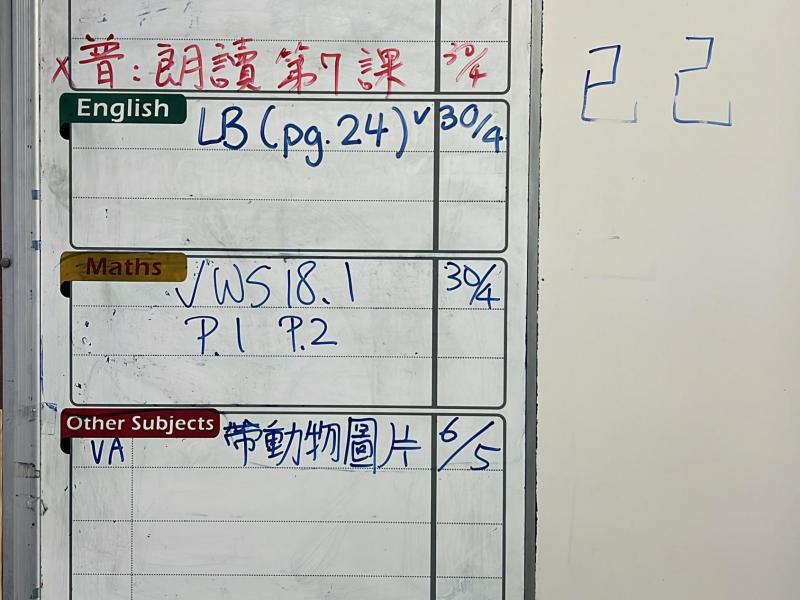 x 普：朗讀 第7 課 30/4
English
LB (pg. 24) ✓ 30/4
Maths
✓ WS 18.1 30/4
P.1 P.2
Other Subjects
VA 帶動物圖片 6/5
已 己